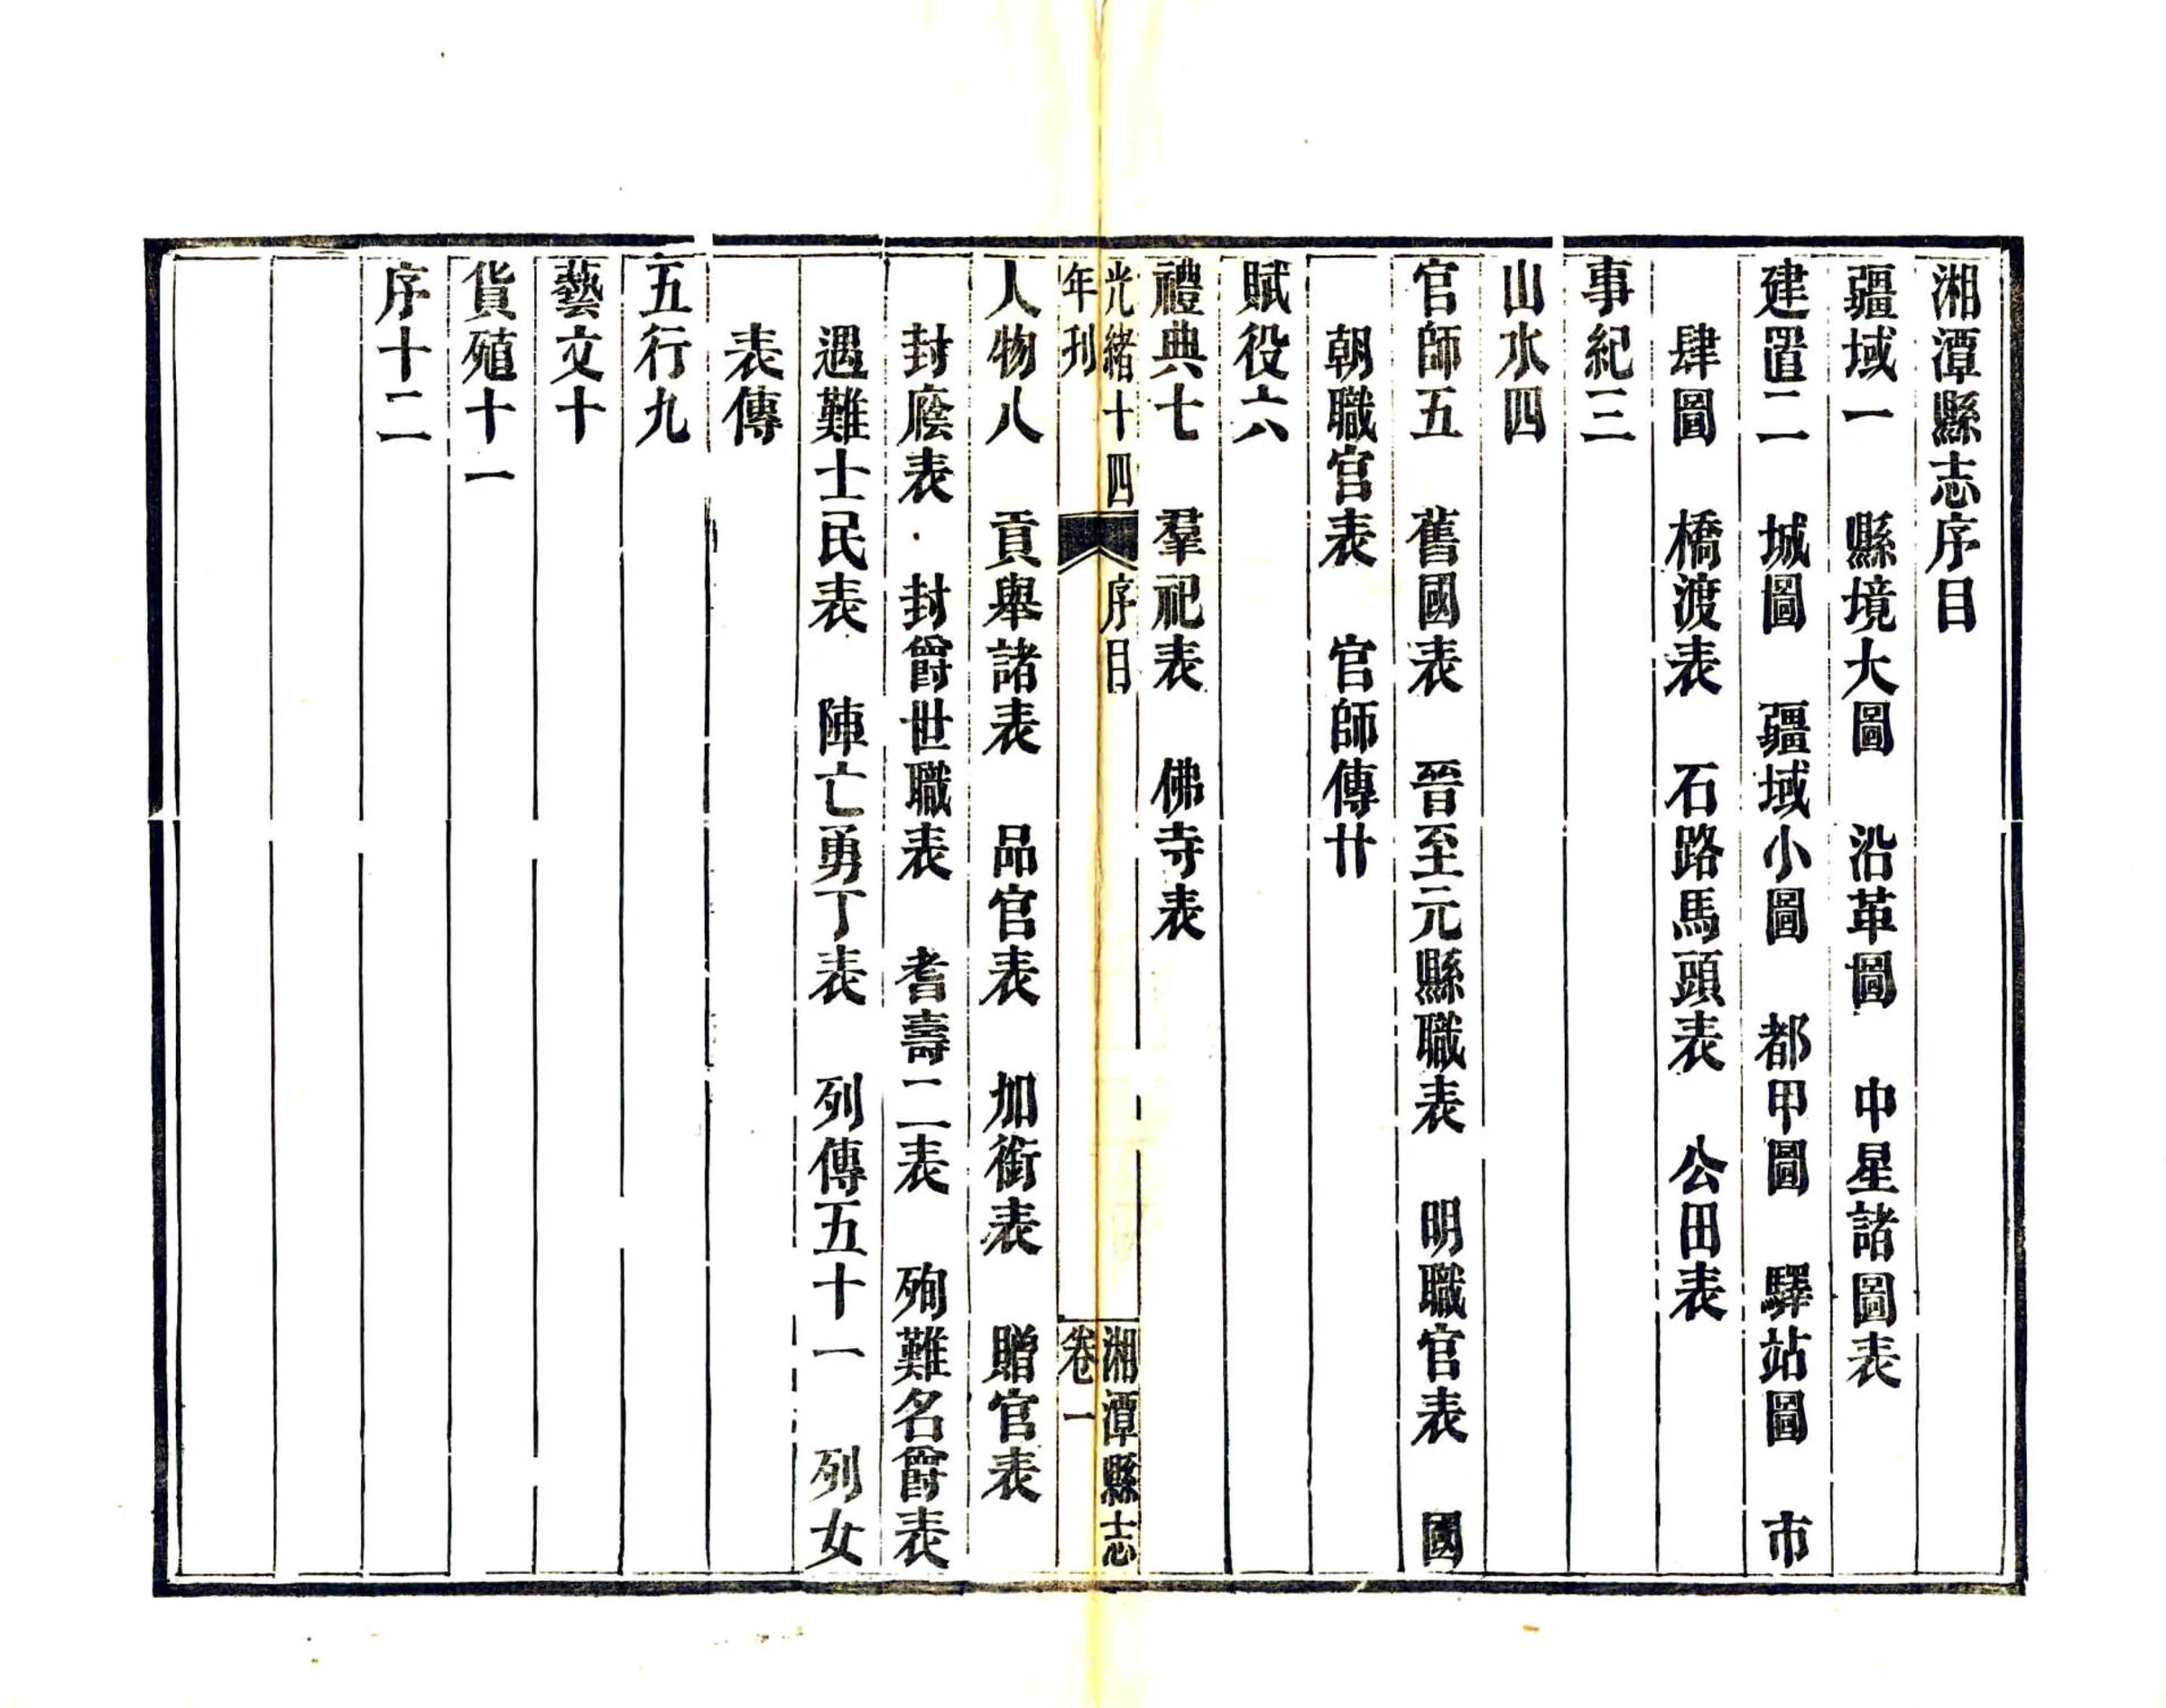 湘潭縣志序目
疆域一　縣境大圖　沿革圖　中星諸圖表
建置二　城圖　疆域小圖　都甲圖　驛站圖　市
肆圖　橋渡表　石路馬頭表　公田表
事紀三
山水四
官師五　舊國表　晉至元縣職表　明職官表　國
朝職官表　官師傳廿
賦役六
禮典七　羣祀表　佛寺表
光緒十四
年刊
序目
湘潭縣志
卷一
人物八　貢舉諸表　品官表　加銜表　贈官表
封廕表　封爵世職表　耆壽二表　殉難名爵表
遇難士民表　陣亡勇丁表　列傳五十一　列女
表傳
五行九
藝文十
貨殖十一
序十二